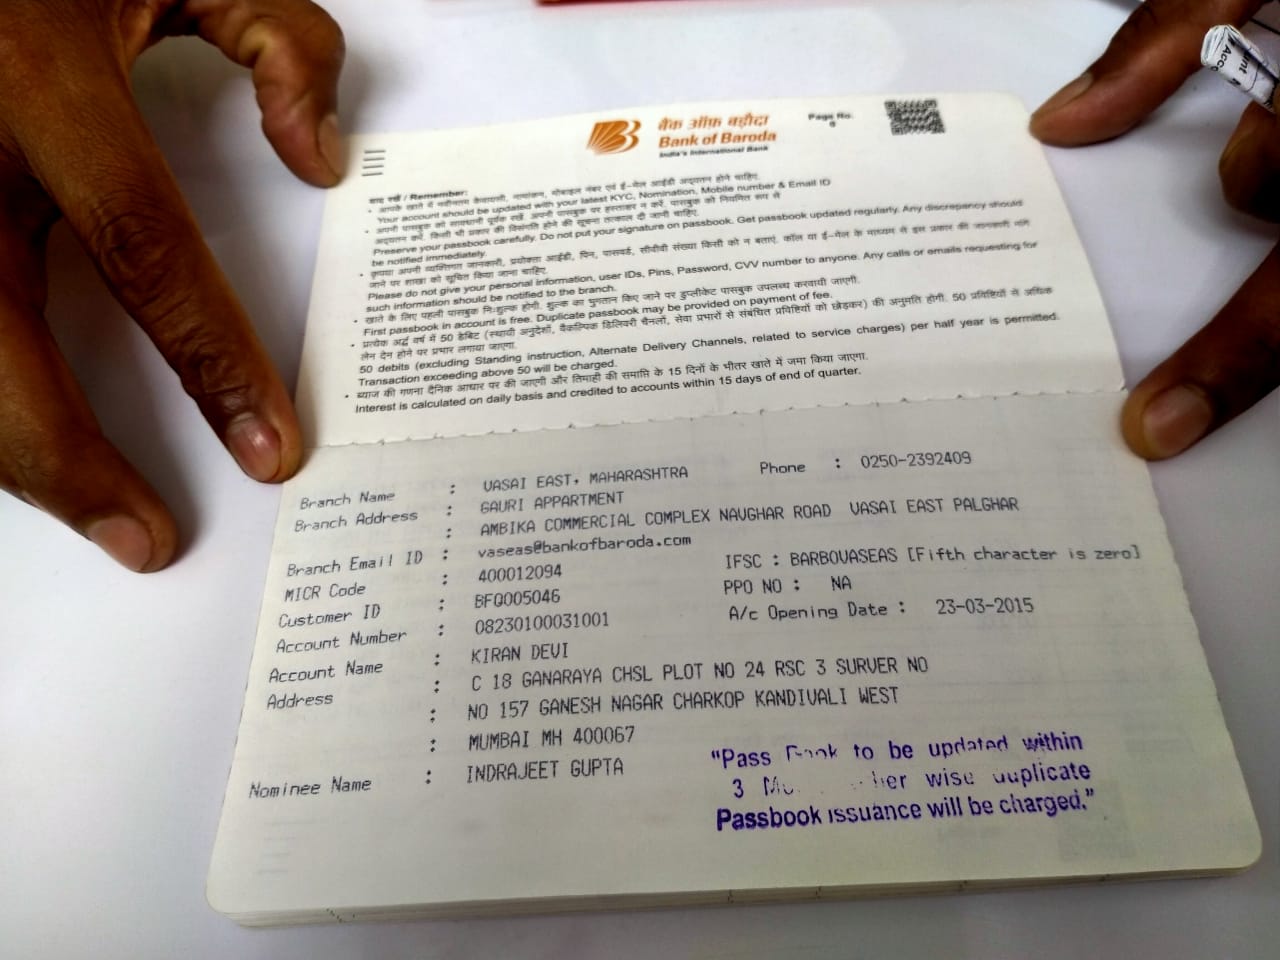 बैंक ऑफ़ बड़ौदा
Bank of Baroda
India's International Bank
Page No.
0
याद रखें / Remember:
• आपके खाते में नवीनतम केवायसी, नामांकन, मोबाइल नंबर एवं ई-मेल आईडी अद्यतन होने चाहिए.
Your account should be updated with your latest KYC, Nomination, Mobile number & Email ID
• अपनी पासबुक को सावधानी पूर्वक रखें. अपनी पासबुक पर हस्ताक्षर न करें. पासबुक को नियमित रूप से
अद्यतन करें. किसी भी प्रकार की विसंगति होने की सूचना तत्काल दी जानी चाहिए.
Preserve your passbook carefully. Do not put your signature on passbook. Get passbook updated regularly. Any discrepancy should
be notified immediately.
• कृपया अपनी व्यक्तिगत जानकारी, प्रयोक्ता आईडी, पिन, पासवर्ड, सीवीवी संख्या किसी को न बताएं. कॉल या ई-मेल के माध्यम से इस प्रकार की जानकारी मांगे
जाने पर शाखा को सूचित किया जाना चाहिए.
Please do not give your personal information, user IDs, Pins, Password, CVV number to anyone. Any calls or emails requesting for
such information should be notified to the branch.
• खाते के लिए पहली पासबुक निःशुल्क होगी. शुल्क का भुगतान किए जाने पर डुप्लीकेट पासबुक उपलब्ध करवायी जाएगी.
First passbook in account is free. Duplicate passbook may be provided on payment of fee.
• प्रत्येक अर्द्ध वर्ष में 50 डेबिट (स्थायी अनुदेशों, वैकल्पिक डिलिवरी चैनलों, सेवा प्रभारों से संबंधित प्रविष्टियों को छोड़कर) की अनुमति होगी. 50 प्रविष्टियों से अधिक
लेन देन होने पर प्रभार लगाया जाएगा.
50 debits (excluding Standing instruction, Alternate Delivery Channels, related to service charges) per half year is permitted.
Transaction exceeding above 50 will be charged.
• ब्याज की गणना दैनिक आधार पर की जाएगी और तिमाही की समाप्ति के 15 दिनों के भीतर खाते में जमा किया जाएगा.
Interest is calculated on daily basis and credited to accounts within 15 days of end of quarter.
Branch Name : VASAI EAST, MAHARASHTRA Phone : 0250-2392409
Branch Address : GAURI APPARTMENT
: AMBIKA COMMERCIAL COMPLEX NAVGHAR ROAD VASAI EAST PALGHAR
Branch Email ID : vaseas@bankofbaroda.com
MICR Code : 400012094 IFSC : BARB0VASEAS [Fifth character is zero]
Customer ID : BFQ005046 PPO NO : NA
Account Number : 08230100031001 A/c Opening Date : 23-03-2015
Account Name : KIRAN DEVI
Address : C 18 GANARAYA CHSL PLOT NO 24 RSC 3 SURVER NO
: NO 157 GANESH NAGAR CHARKOP KANDIVALI WEST
: MUMBAI MH 400067
Nominee Name : INDRAJEET GUPTA
"Pass Book to be updated within
3 wise duplicate
Passbook issuance will be charged."